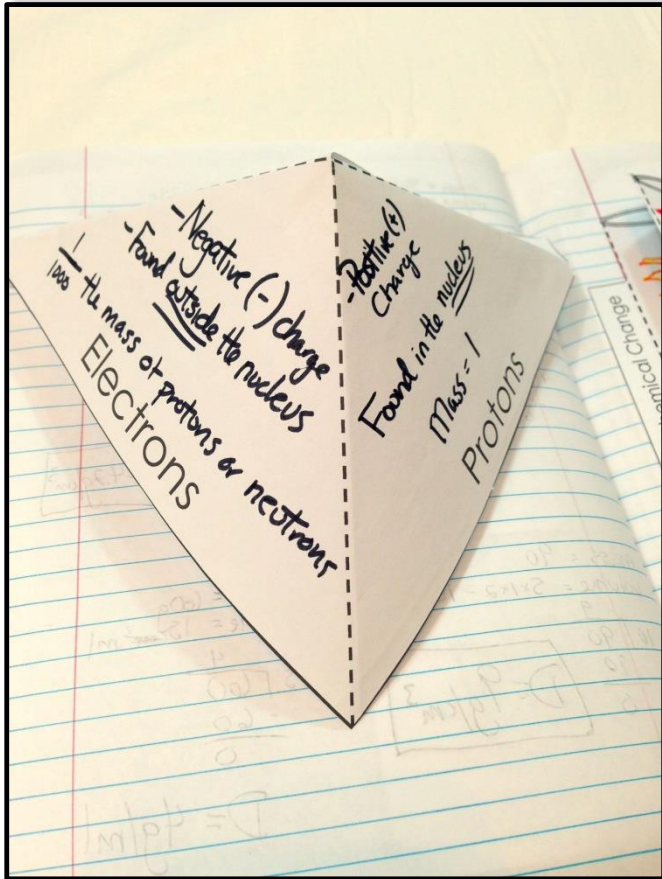 -Negative (-) charge
-Found outside the nucleus
1/1000 the mass of protons or neutrons
Electrons
-Positive (+)
Charge
Found in the nucleus
Mass = 1
Protons
emical Change
D = 9g/cm³
D = 4g/ml